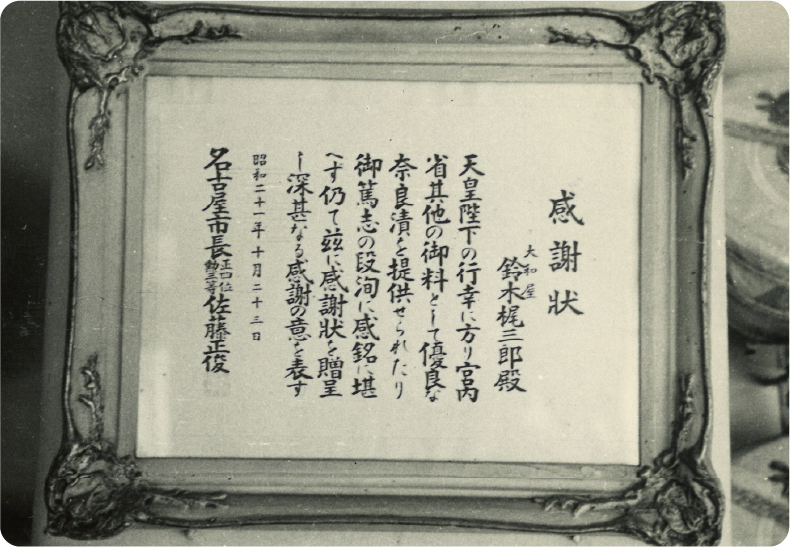 感謝狀
大和屋
鈴木梶三郎殿
天皇陛下の行幸に方り宮内
省其他の御料として優良な
奈良漬を提供せられたり
御篤志の段洵に感銘に堪
へす仍て玆に感謝狀を贈呈
し深甚なる感謝の意を表す
昭和二十一年十月二十三日
名古屋市長正四位勲三等佐藤正俊